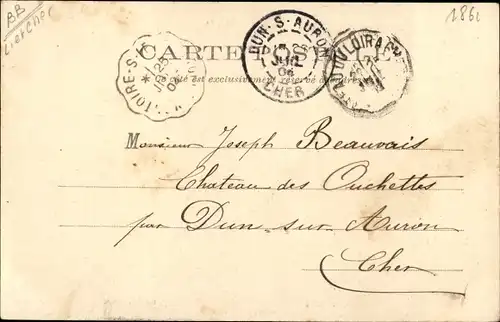 BB
Loir et Cher
1862
CARTE POSTALE
Ce côté est exclusivement réservé à l'adresse
TOIRE-S-L
25
DUN-S-AURON
JUIL
06
CHER
DU LOIR A
Monsieur Joseph Beauvais
Chateau des Ouchettes
par Dun-sur-Auron
Cher